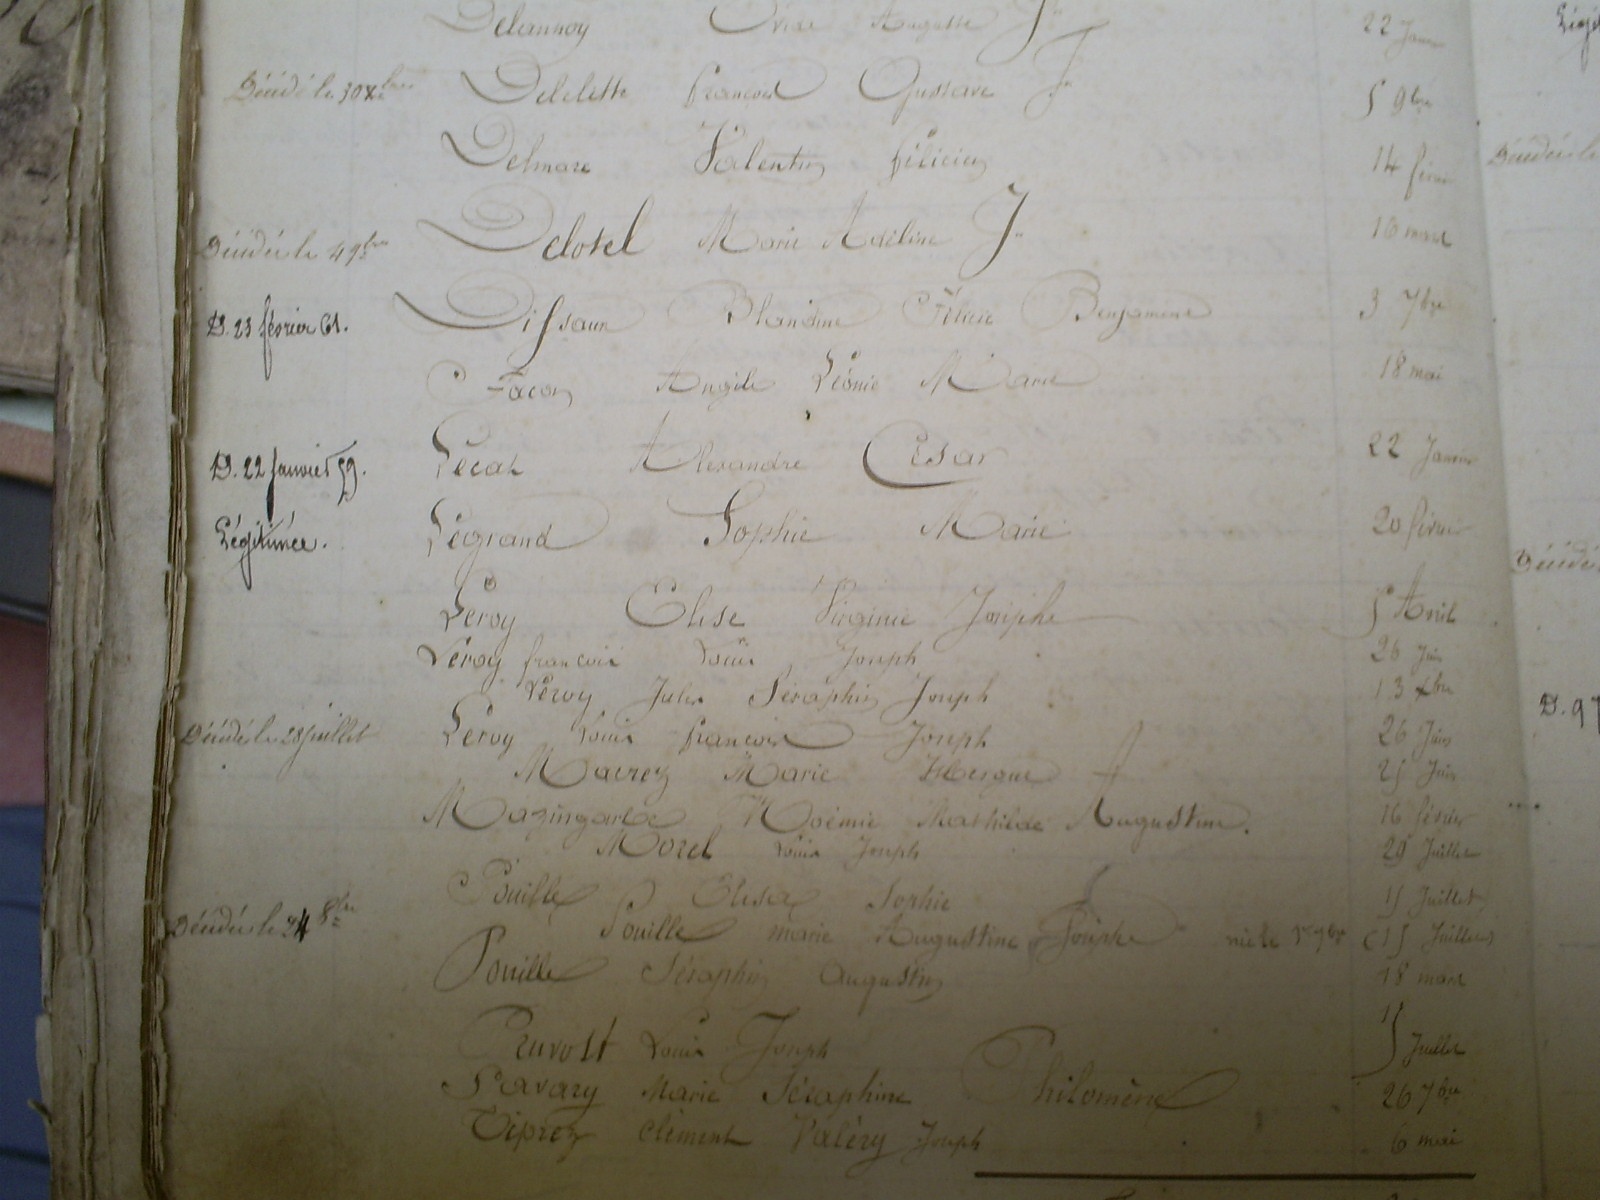 Delannoy Auguste Jh 22 Janv
Décédé le 30 Xbre Delelette françois Gustave Jh 5 9bre
Delmare Valentin félicien 14 févr
Décédée le 4 9bre Delotel Marie Adéline Jh 10 mars
D. 23 février 61. Dissaux Blandine Félicie Benjamine 3 7bre
Facon Angèle Léonie Marie 18 mai
D. 22 Janvier 59. Lécat Alexandre César 22 Janvier
Légitimée. Légrand Sophie Marie 20 févrie
Leroy Elise Virginie Josèphe 5 Avril
Léroy françois Louis Joseph 26 Juin
Léroy Jules Séraphin Joseph 13 Xbre
Décédé le 28 juillet Leroy Louis françois Joseph 26 Juin
Marie 25 Juin
Mazingarbe Noémie Mathilde Augustine. 16 février
Morel Louis Joseph 29 Juillet
Pouille Elisa Sophie 15 Juillet
Décédée le 24 8bre Pouille marie Augustine Josèphe née le 1er 7bre (15 Juillet)
Pouille Séraphin Augustin 18 mars
Pruvost Louis Joseph 15 Juillet
Savary Marie Séraphine Philomène 26 7bre
Tiprez Clément Valéry Joseph 6 mai